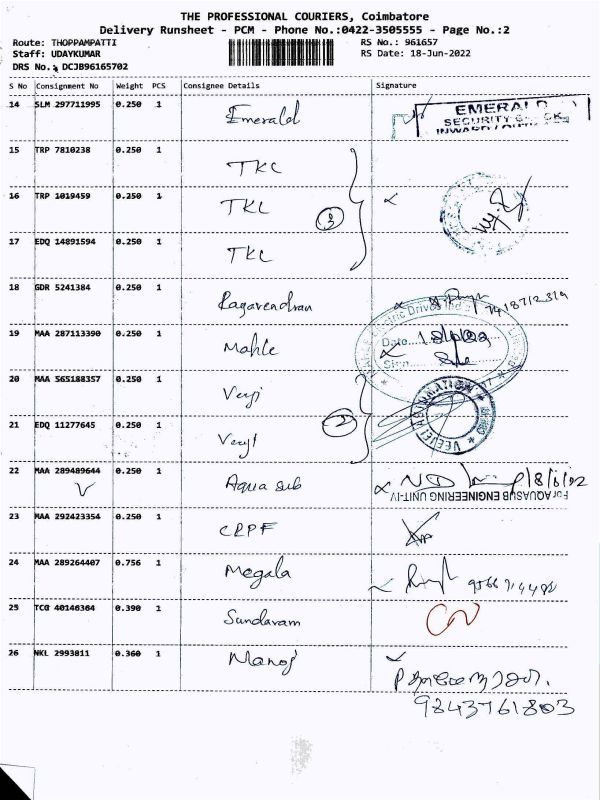 THE PROFESSIONAL COURIERS, Coimbatore
Delivery Runsheet - PCM - Phone No.:0422-3505555 - Page No.:2
Route: THOPPAMPATTI RS No.: 961657
Staff: UDAYKUMAR RS Date: 18-Jun-2022
DRS No.: DCJB96165702
S No Consignment No Weight PCS Consignee Details Signature
14 SLM 297711995 0.250 1 Emerald EMERALD
SECURITY CHECK
15 TRP 7810238 0.250 1 TKC
16 TRP 1019459 0.250 1 TKC 3
17 EDQ 14891594 0.250 1 TKC
18 GDR 5241384 0.250 1 Ragavendran
19 MAA 287113390 0.250 1 Mahle Date
Sign
20 MAA 565188357 0.250 1
21 EDQ 11277645 0.250 1 2
22 MAA 289489644 0.250 1 Aqua sub
For AQUASUB ENGINEERING UNIT-IV
23 MAA 292423354 0.250 1 CRPF
24 MAA 289264407 0.756 1 Megala
25 TCG 40146364 0.390 1 Sundaram
26 NKL 2993811 0.360 1 Manoj
9843761803